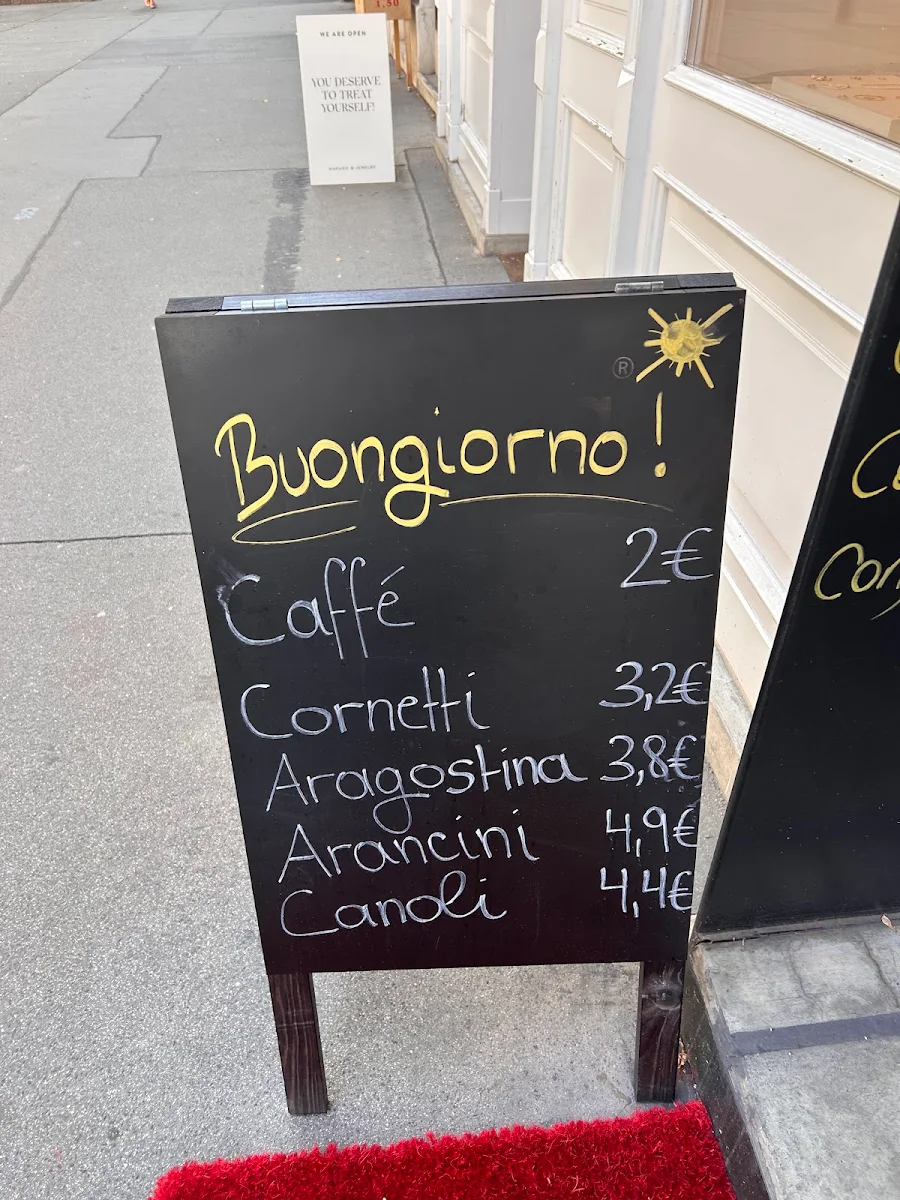 1,50
WE ARE OPEN
YOU DESERVE
TO TREAT
YOURSELF!
®
Buongiorno!
Caffé 2€
Cornetti 3,2€
Aragostina 3,8€
Arancini 4,9€
Canoli 4,4€